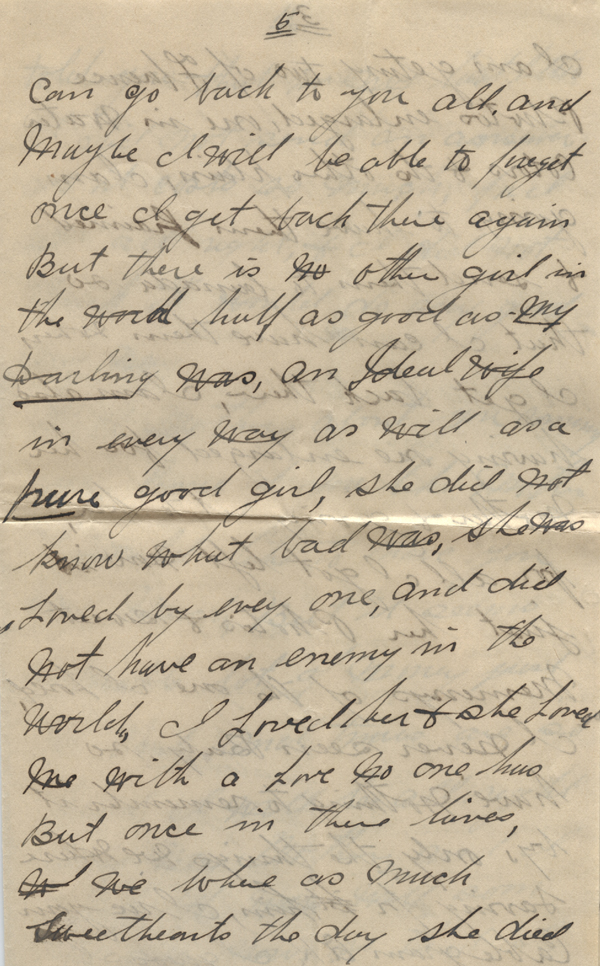 5
can go back to you all, and
Maybe I will be able to forget
once I get back there again
But there is no other girl in
the world half as good as my
Darling was, an Ideal wife
in every way as will as a
pure good girl, she did not
know what bad was, she was
Loved by evey one, and did
Not have an enemy in the
World, I Loved her & she Loved
Me with a Love No one has
But once in there lives,
W We where as much
Sweethearts the day she died